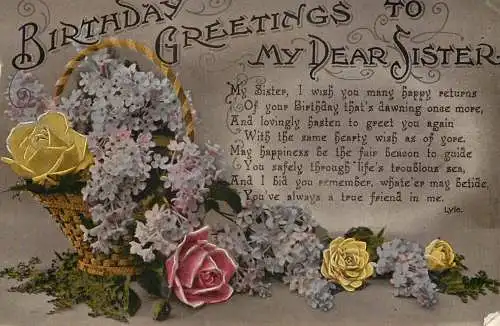 BIRTHDAY GREETINGS TO
MY DEAR SISTER
My Sister, I wish you many happy returns
Of your Birthday that's dawning once more,
And lovingly hasten to greet you again
With the same hearty wish as of yore.
May happiness be the fair beacon to guide
You safely through life's troublous sea,
And I bid you remember, whate'er may betide,
You've always a true friend in me.
Lyle.